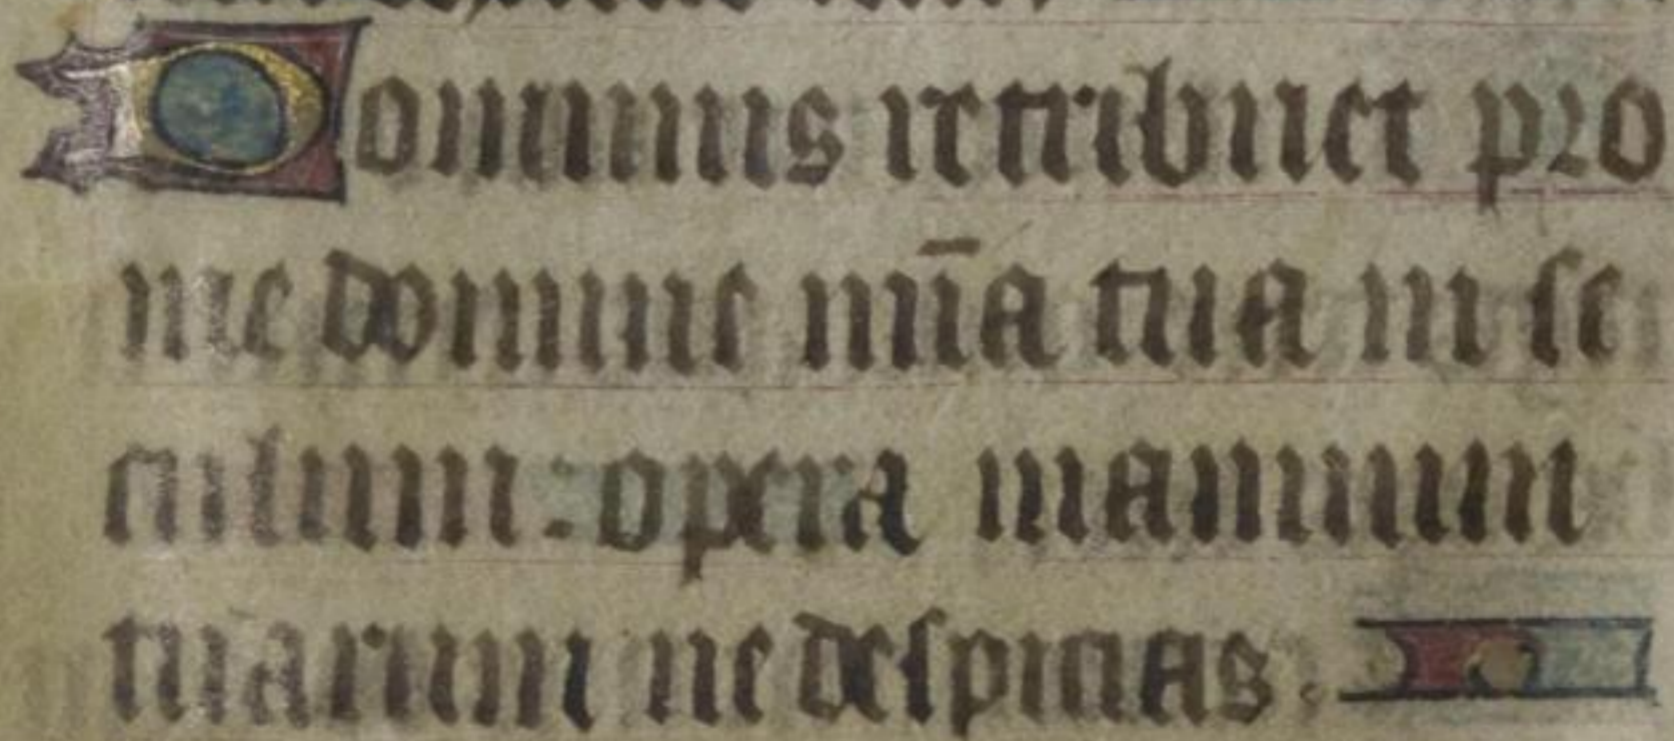 Dominus retribuet pro
me domine mīa tua in se
culum : opera manuum
tuarum ne despicias .